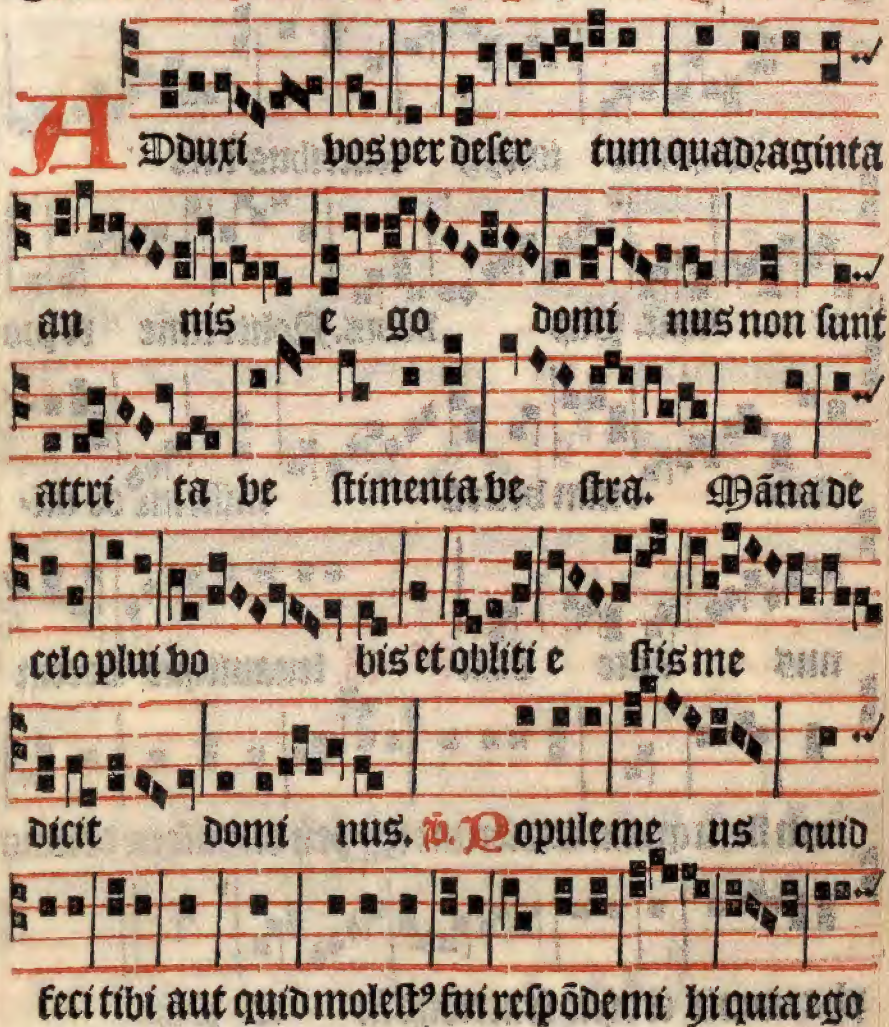 ADduxi vos per deser tum quadraginta
an nis e go domi nus non sunt
attri ta ve stimenta ve stra. Mãna de
celo plui vo bis et obliti e stis me
dicit domi nus. v̄. Popule me us quid
feci tibi aut quid molestꝰ fui respõde mi hi quia ego